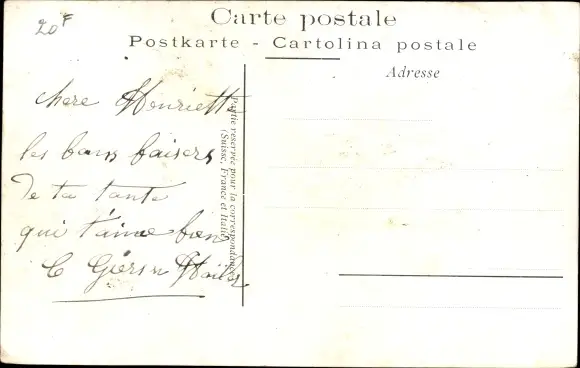 20F
Carte postale
Postkarte - Cartolina postale
Adresse
Partie réservée pour la correspondance
(Suisse, France et Italie)
chere Henriette
les bons baisers
De ta tante
qui t'aime bien
C